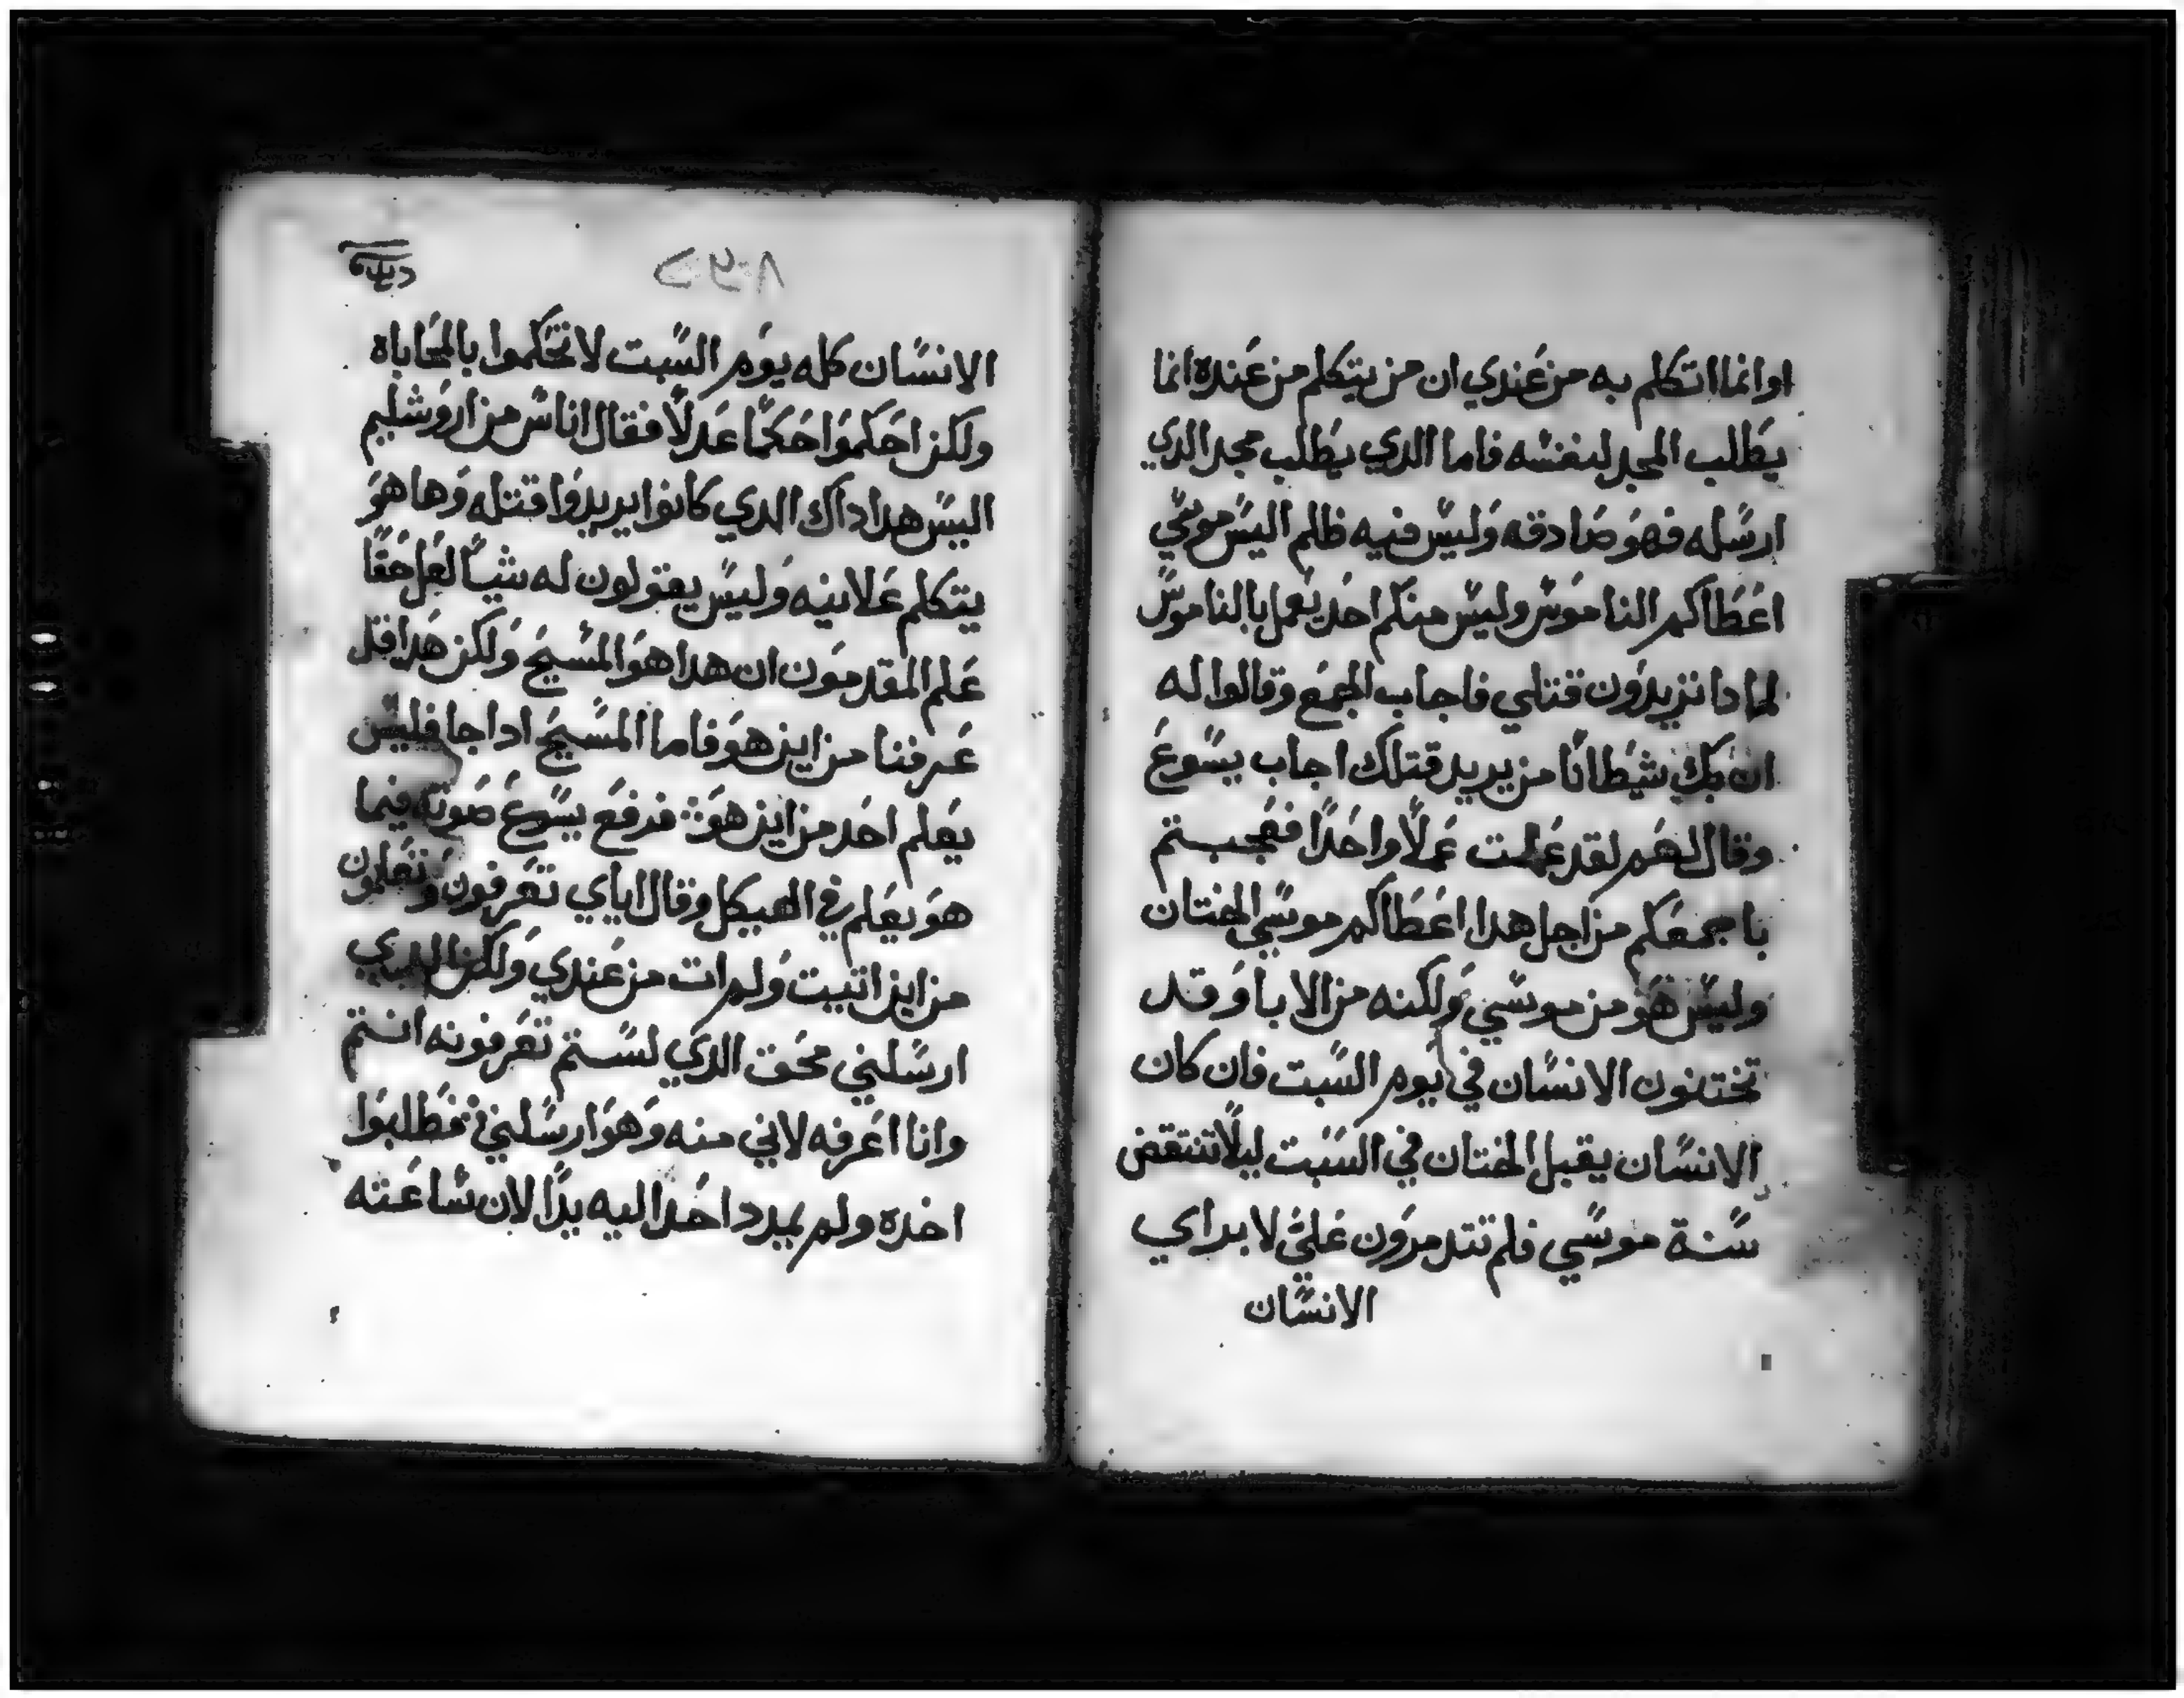 اوانما اتكلم به من عندي ان من يتكلم من عنده انما
يطلب المجد لنفسه فاما الدي يطلب مجد الدي
ارسله فهو صادقه وليس فيه ظلم اليس موسي
اعطاكم الناموس وليس منكم احد يعمل بالناموس
لمادا تريدون قتلي فاجاب الجمع وقالوا له
ان بك شيطانا من يريد قتلك اجاب يسوع
وقال لهم لقد عملت عملا واحدا فعجبتم
باجمعكم من اجل هدا اعطاكم موسي الختان
وليس هو من موسي ولكنه من الابا وقد
تختنون الانسان في يوم السبت فان كان
الانسان يقبل الختان في السبت ليلا تنتقض
سنة موسي فلم تتدمرون علي لابراي
الانسان
الانسان كله يوم السبت لا تحكموا بالمحاباه
ولكن احكموا حكما عدلا فقال اناس من اروشليم
اليس هدا داك الدي كانوا يريدوا قتله وها هو
يتكلم علانيه وليس يقولون له شيا لعل حقا
علم المقدمون ان هدا هو المسيح ولكن هدا قد
عرفنا من اين هو فاما المسيح ادا جا فليس
يعلم احد من اين هو فرفع يسوع صوته فيما
هو يعلم في الهيكل وقال اياي تعرفون وتعلمون
من اين اتيت ولم ات من عندي ولكن الدي
ارسلني محق الدي لستم تعرفونه انتم
وانا اعرفه لاني منه وهو ارسلني فطلبوا
اخده ولم يمدد احدا اليه يدا لان ساعته